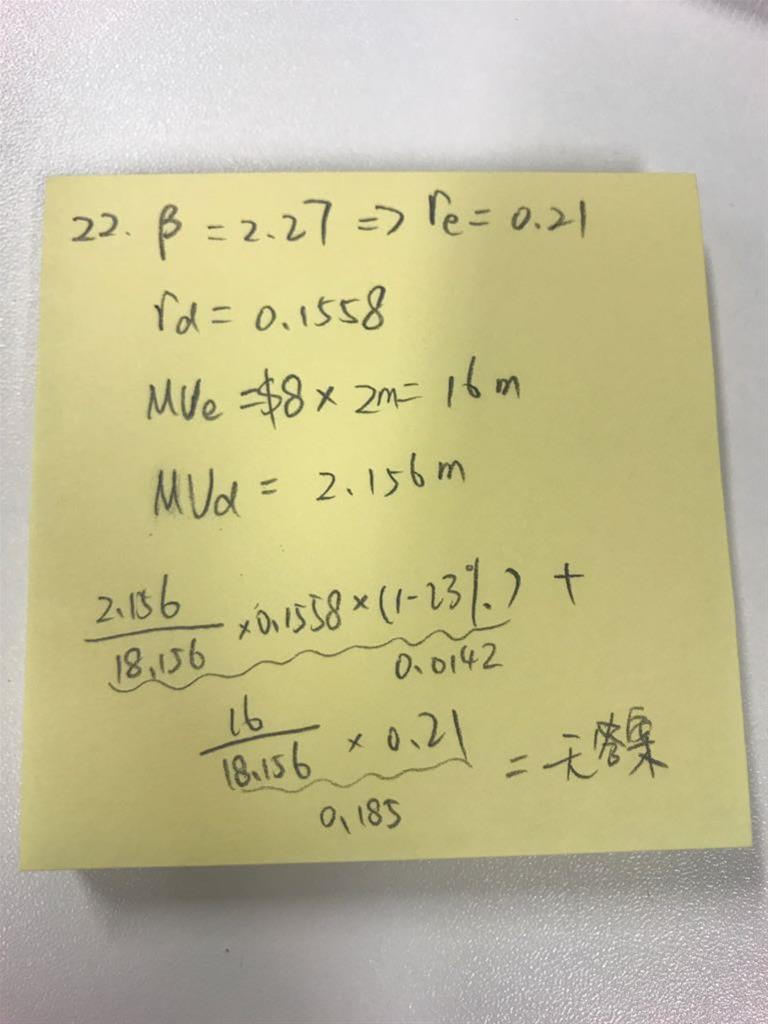 22. β = 2.27 => re = 0.21
rd = 0.1558
MVe = $8 × 2m = 16m
MVd = 2.156m
2.156
18.156
×0.1558×(1-23%) +
0.0142
16
18.156
× 0.21
= 无答案
0.185